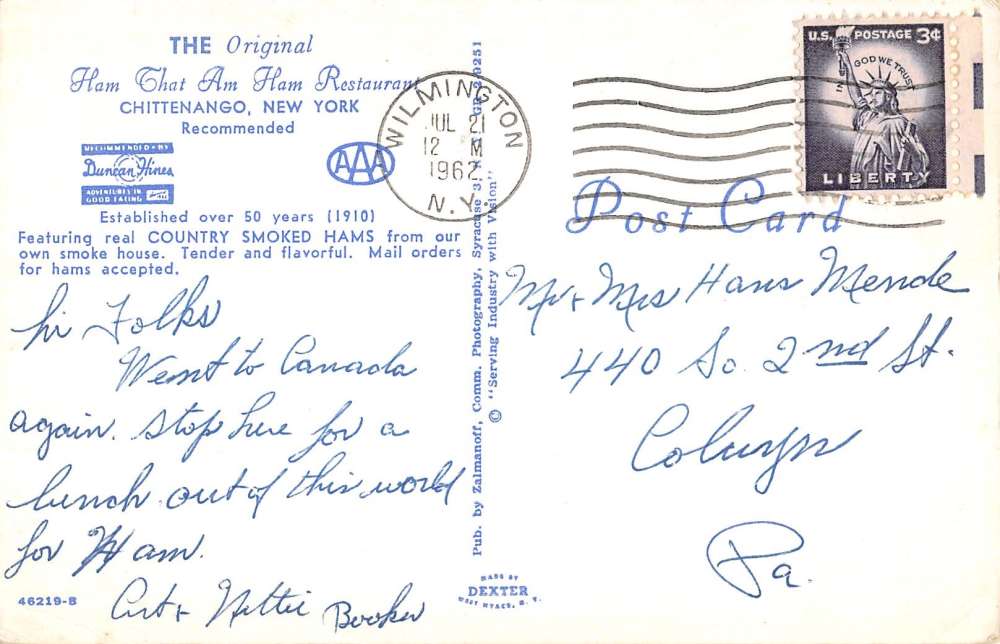 THE Original
Ham That Am Ham Restaurant
CHITTENANGO, NEW YORK
Recommended
RECOMMENDED BY
Duncan Hines
ADVENTURES IN
GOOD EATING
AAA
Established over 50 years (1910)
Featuring real COUNTRY SMOKED HAMS from our
own smoke house. Tender and flavorful. Mail orders
for hams accepted.
hi Folks
Went to Canada
again. stop here for a
lunch out of this world
for Ham.
Art & Nettie Booker
46219-B
Pub. by Zalmanoff, Comm. Photography, Syracuse 3,
© "Serving Industry with Vision"
MADE BY
DEXTER
WEST NYACK, N. Y.
WILMINGTON
JUL 21
12 M
1962
N.Y.
U.S. POSTAGE 3¢
IN GOD WE TRUST
LIBERTY
Post Card
Mr & Mrs Hans Mende
440 So. 2nd St.
Colwyn
Pa.